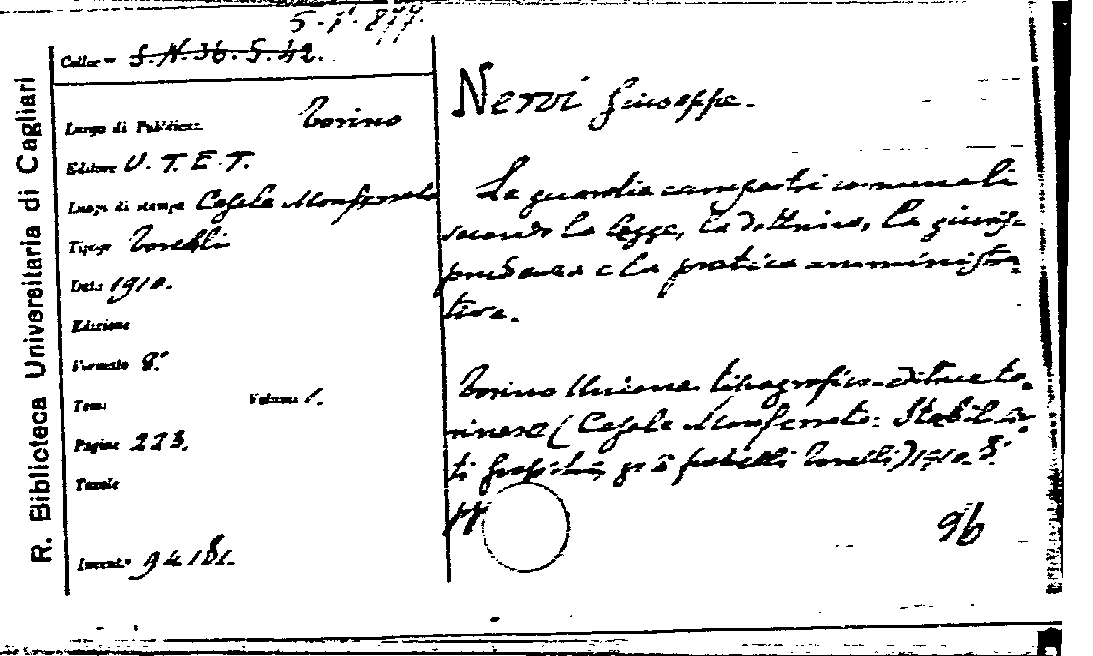 5.1.877.
R. Biblioteca Universitaria di Cagliari
Colloc.ne S.N.36.5.42.
Luogo di Pubblicaz. Torino
Editore U.T.E.T.
Luogo di stampa Casale Monferrato
Tipogr. Torelli
Data 1910.
Edizione
Formato 8°
Tomi Volumi 1.
Pagine 223.
Tavole
Invent.° 94181.
Nervi Giuseppe.
Le guardie campestri comunali
secondo la legge, la dottrina, la giuris-
prudenza e la pratica amministra-
tiva.
Torino Unione tipografico-editrice to-
rinese (Casale Monferrato: Stabilimen-
ti fratelli Torelli) 1910. 8°
pp
96